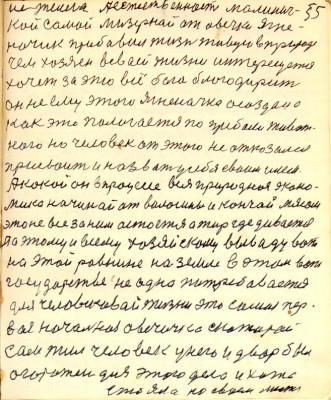 не телка Аестественност маленич
кой самой мизурнай от овечки ягне
55
ночик прибавил жизн живую в природ
чем хозяен в своей жизни интересуется
хочет за это всё бога благодарит
он не ему этого ягненачка создано
как это пологается по прибыли живот
ного но человек от этого не отказался
присвоит и назват у себя своим имем
А какой он в процессе вся природное эконо
мика начинай от волосины и кончай мясам
это не всё зании остоется а тир где дивается
По этому и всему хозяйскому вываду вот
на этой равнине на земле в этом вот
государстве не одна потребавается
для человиковай жизни это самая пер
вая началная овечичка с каторай
сам жил человек у него и двор был
огорожен для этого дела и хата
стояла на своем месте